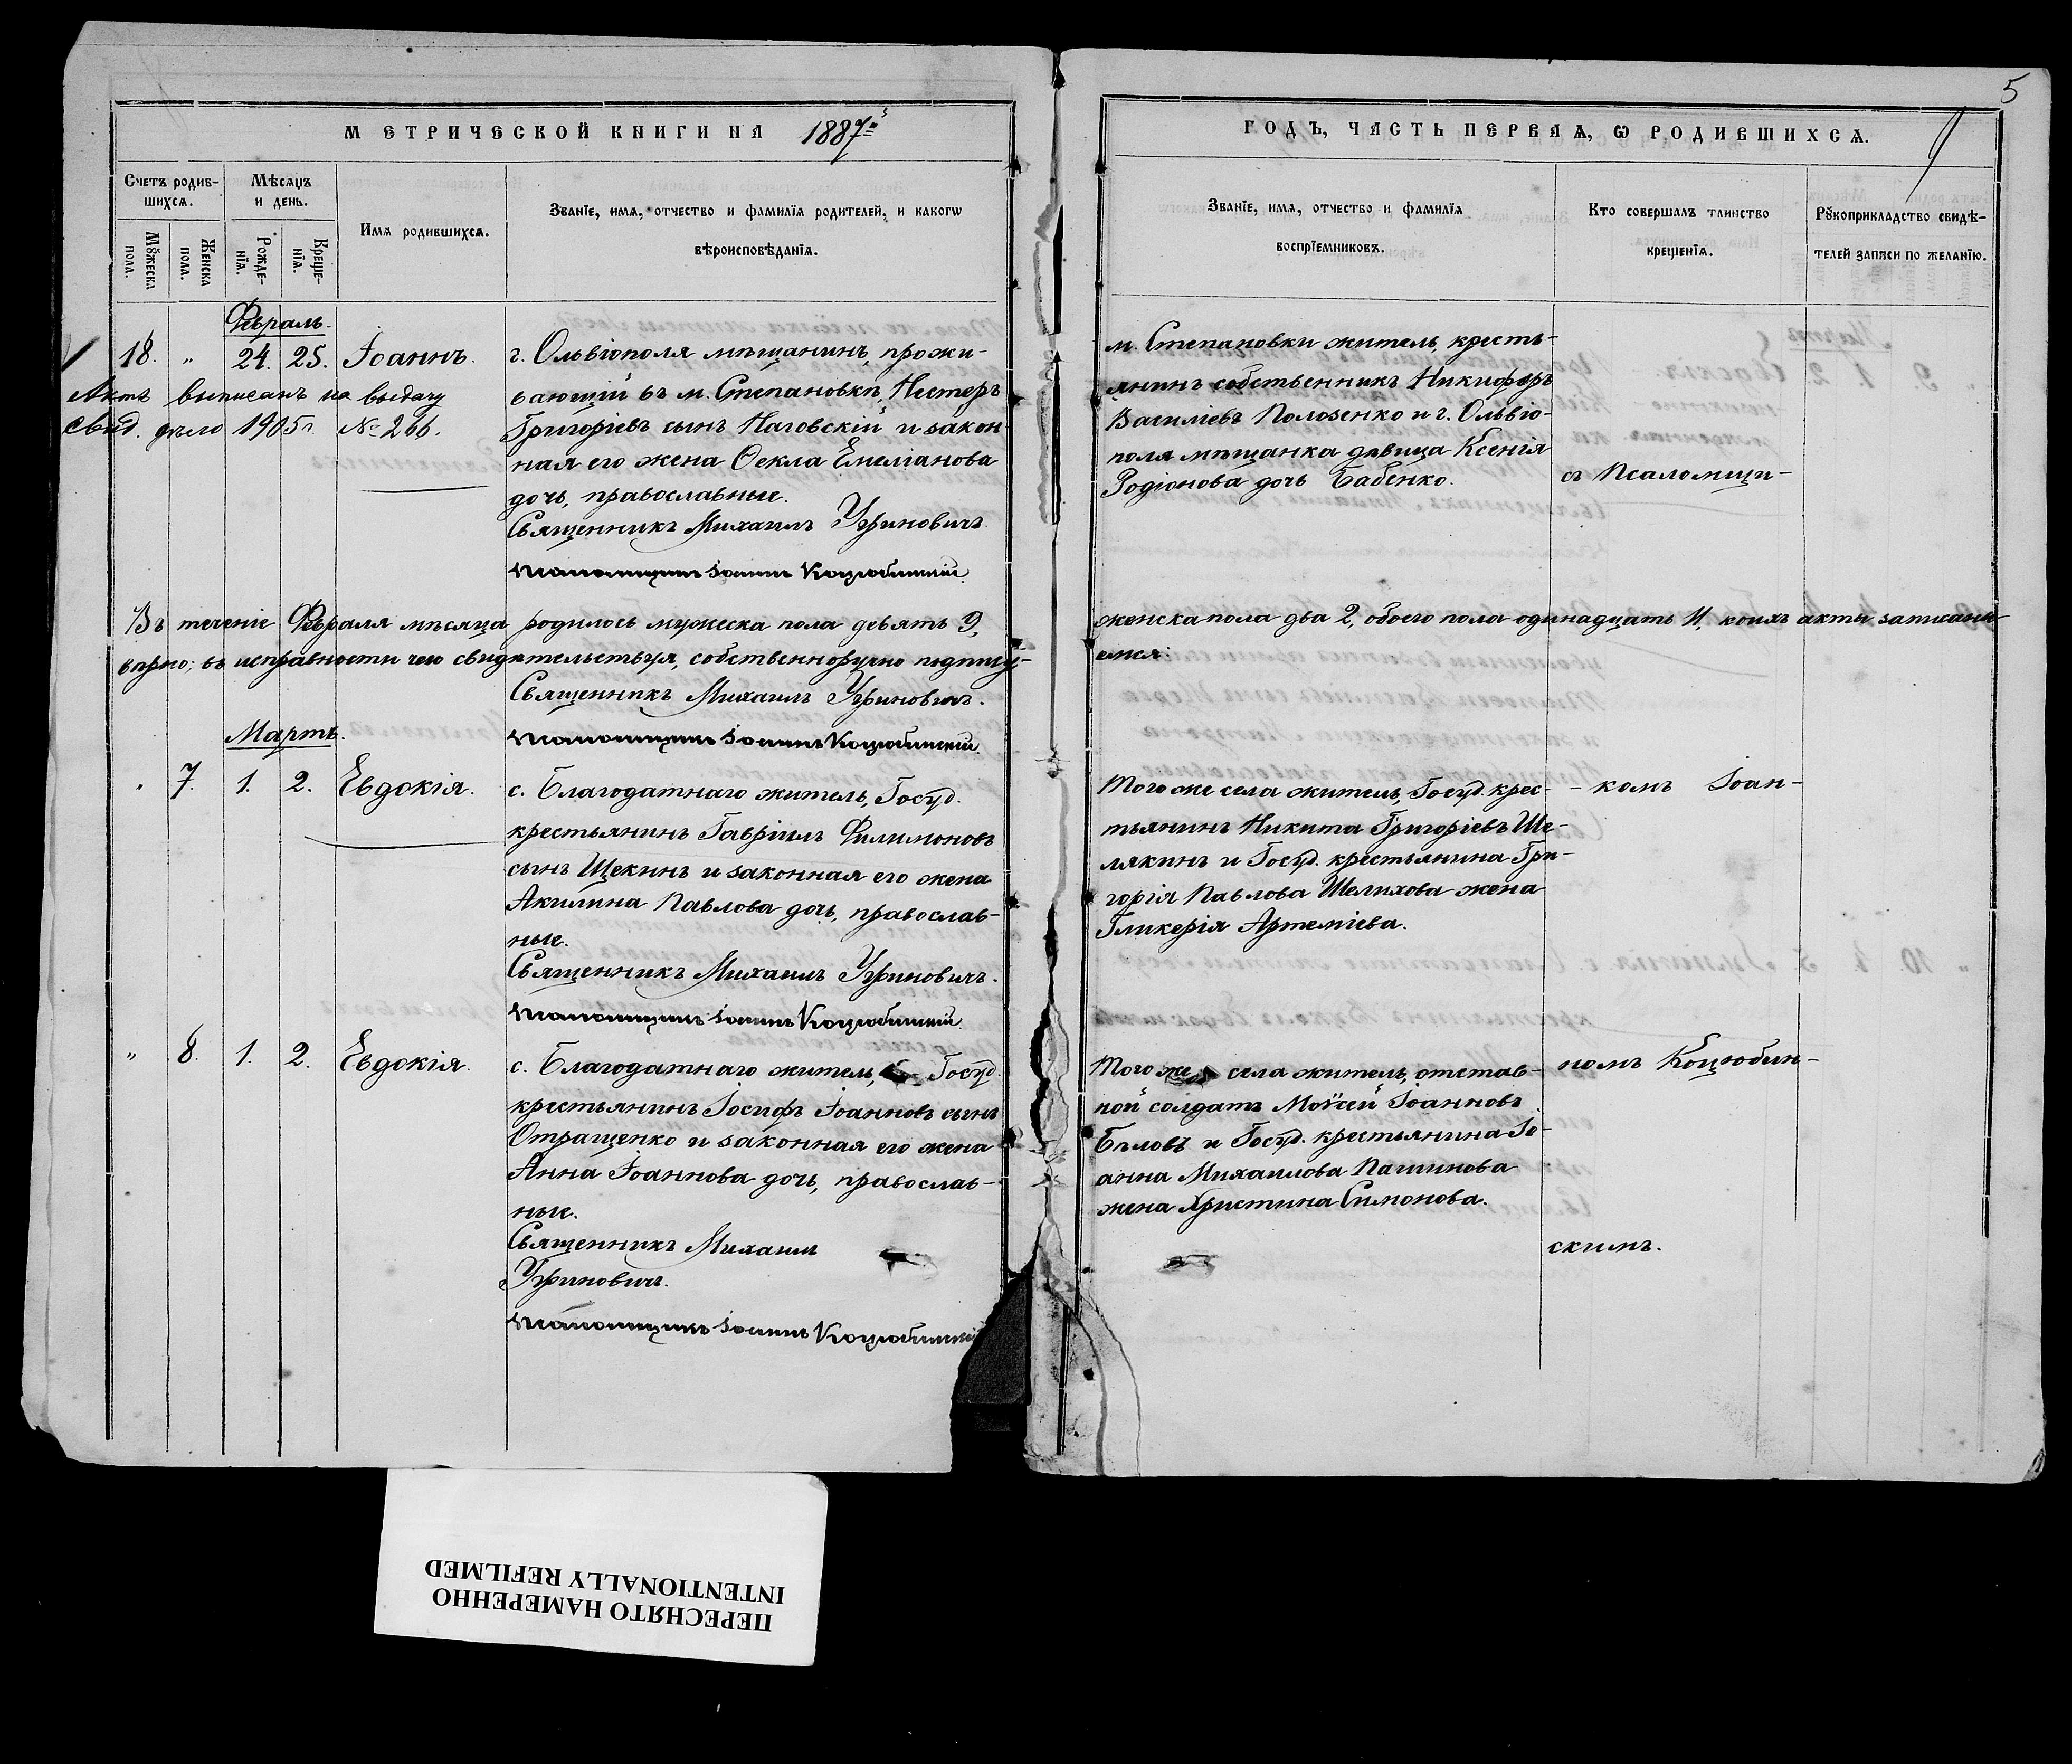 5
МЕТРИЧЕСКОЙ КНИГИ НА 1887й
ГОДЪ, ЧАСТЬ ПЕРВАѦ, Ѡ РОДИВШИХСѦ.
Счетъ родив-
шихсѧ.
Мѣсѧцъ
и день.
Мꙋжеска
пола.
Женска
пола.
Рожде-
нїѧ.
Креще-
нїѧ.
Имѧ родившихсѧ.
Званїе, имѧ, отчество и фамилїѧ родителей, и какогѡ
вѣроисповѣданїѧ.
Званїе, имѧ, отчество и фамилїѧ
воспрїемниковъ.
Кто совершалъ таинство
крещенїѧ.
Рꙋкоприкладство свидѣ-
телей записи по желанїю.
Февраль.
18. " 24. 25. Іоаннъ.
Актъ выписанъ на выдачу
свид. дѣло 1905 г. № 266.
г. Ольвіополя мѣщанинъ, прожи-
вающій въ м. Степановкѣ, Нестеръ
Григоріевъ сынъ Наговскій и закон-
ная его жена Ѳекла Емеліанова
дочь, православные.
Священникъ Михаилъ Угриновичъ.
Псаломщикъ Іоаннъ Коцюбинскій.
м. Степановки житель, кресть-
янинъ собственникъ Никифоръ
Василіевъ Полозенко и г. Ольвіо-
поля мѣщанка дѣвица Ксенія
Родіонова дочь Бабенко.
съ Псаломщи-
Въ теченіе Февраля мѣсяца родилось мужеска пола девять 9,
женска пола два 2, обоего пола одинадцать 11, коихъ акты записаны
вѣрно; въ исправности чего свидѣтельствуя, собственноручно подпису-
емся:
Священникъ Михаилъ Угриновичъ.
Псаломщикъ Іоаннъ Коцюбинскій.
Мартъ.
" 7. 1. 2. Евдокія.
с. Благодатнаго житель, Госуд.
крестьянинъ Гавріилъ Филимоновъ
сынъ Щекинъ и законная его жена
Акилина Павлова дочь, православ-
ные.
Священникъ Михаилъ Угриновичъ.
Псаломщикъ Іоаннъ Коцюбинскій.
Того же села житель, Госуд. крес-
тьянинъ Никита Григоріевъ Ше-
лякинъ и Госуд. крестьянина Гри-
горія Павлова Шелихова жена
Гликерія Артеміева.
- комъ Іоан-
" 8. 1. 2. Евдокія.
с. Благодатнаго житель, Госуд.
крестьянинъ Іосифъ Іоанновъ сынъ
Отращенко и законная его жена
Анна Іоаннова дочь, православ-
ные.
Священникъ Михаилъ
Угриновичъ.
Псаломщикъ Іоаннъ Коцюбинскій
Того же села житель, отстав-
ной солдатъ Моѵсей Іоанновъ
Бѣловъ и Госуд. крестьянина Іо-
анна Михаилова Пашинова
жена Христина Симонова.
номъ Коцюбин-
скимъ.
ПЕРЕСНЯТО НАМЕРЕННО
INTENTIONALLY REFILMED